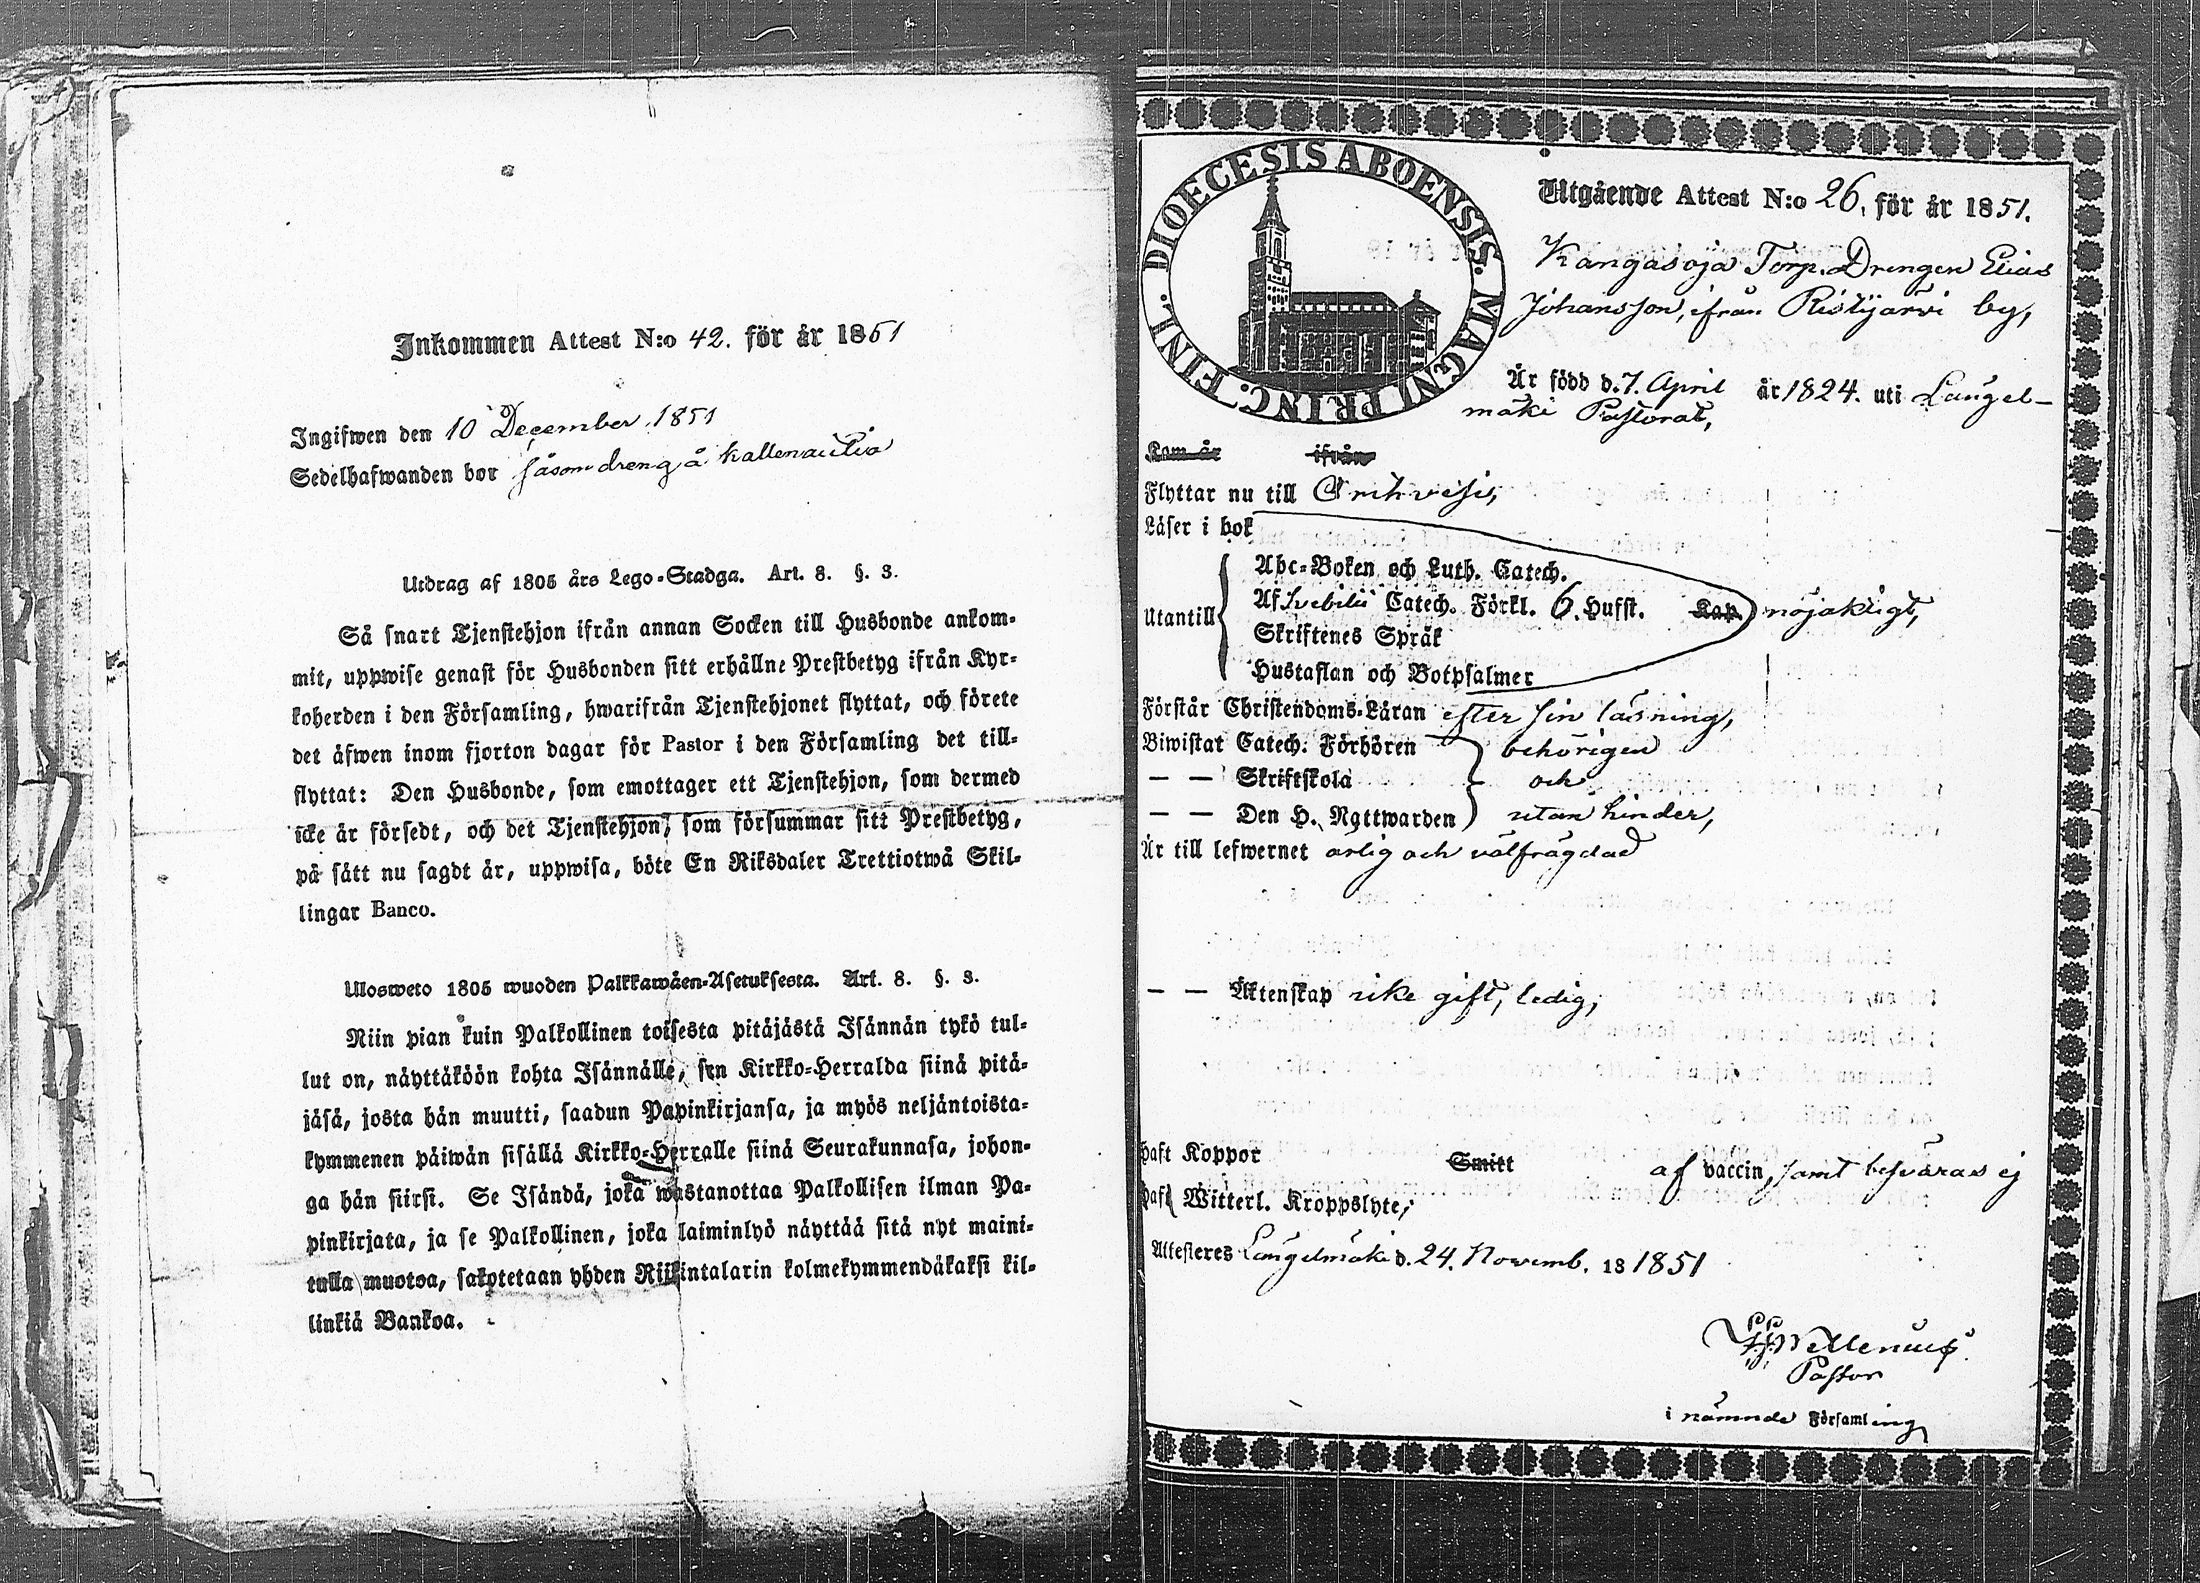 Inkommen Attest N:o 42. för år 1851
Ingifwen den 10 December 1851
Sedelhafwanden bor såsom dreng å Kallenautio
Utdrag af 1805 års Lego-Stadga. Art. 8. §. 3.
Så snart Tjenstehjon ifrån annan Socken till Husbonde ankom-
mit, uppwise genast för Husbonden sitt erhållne Prestbetyg ifrån Kyr-
koherden i den Församling, hwarifrån Tjenstehjonet flyttat, och förete
det äfwen inom fjorton dagar för Pastor i den Församling det till-
flyttat: Den Husbonde, som emottager ett Tjenstehjon, som dermed
icke är försedt, och det Tjenstehjon, som försummar sitt Prestbetyg,
på sätt nu sagdt är, uppwisa, böte En Riksdaler Trettiotwå Skil-
lingar Banco.
Ulosweto 1805 wuoden Palkkawäen-Asetuksesta. Art. 8. §. 3.
Niin pian kuin Palkollinen toisesta pitäjästä Isännän tykö tul-
lut on, näyttäköön kohta Isännälle, sen Kirkko-Herralda siinä pitä-
jäsä, josta hän muutti, saadun Papinkirjansa, ja myös neljäntoista-
kymmenen päiwän sisällä Kirkko-Herralle siinä Seurakunnasa, johon-
ga hän siirsi. Se Isändä, joka wastanottaa Palkollisen ilman Pa-
pinkirjata, ja se Palkollinen, joka laiminlyö näyttää sitä nyt maini-
tulla muotoa, sakotetaan yhden Riikintalarin kolmekymmendäkaksi kil-
linkiä Bankoa.
DIOECESIS ABOENSIS. MAGNI PRINC. FINL.
Utgående Attest N:o 26, för år 1851.
Kangasoja Torp. Drengen Elias
Johansson, ifrån Ristijärvi by,
Är född d. 7. April år 1824. uti Längel-
mäki Pastorat,
Kom år ifrån
Flyttar nu till Orihvesi,
Läser i bok
Abc-Boken och Luth. Catech.
Utantill Af Svebilii Catech. Förkl. 6. Hufst. Kap. nöjaktigt,
Skriftenes Språk
Hustaflan och Botpsalmer
Förstår Christendoms-Läran efter sin läsning,
Biwistat Catech. Förhören behörigen
— — Skriftskola och
— — Den H. Nattwarden utan hinder,
Är till lefwernet ärlig och välfrägdad
— — Äktenskap icke gift, ledig,
Haft Koppor Smitt af vaccin, samt besväras ej
Haft Witterl. Kroppslyte,
Attesteres Längelmäki d. 24. Novemb. 18 1851
Pastor
i nämnde Församling